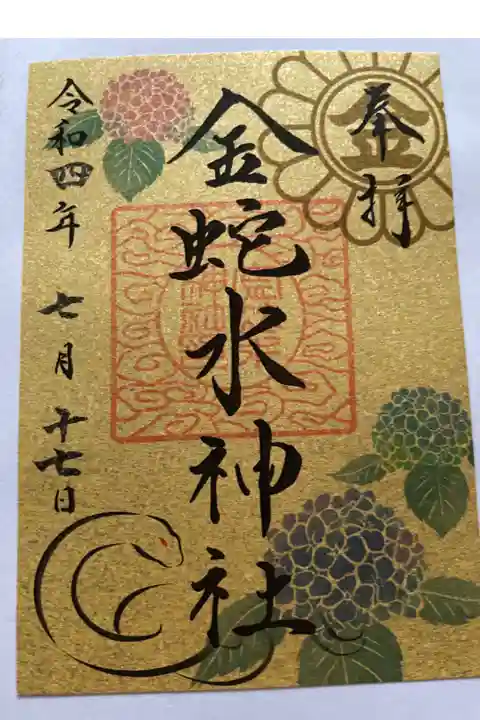 奉拝
金
金蛇水神社
令和四年 七月 十七日